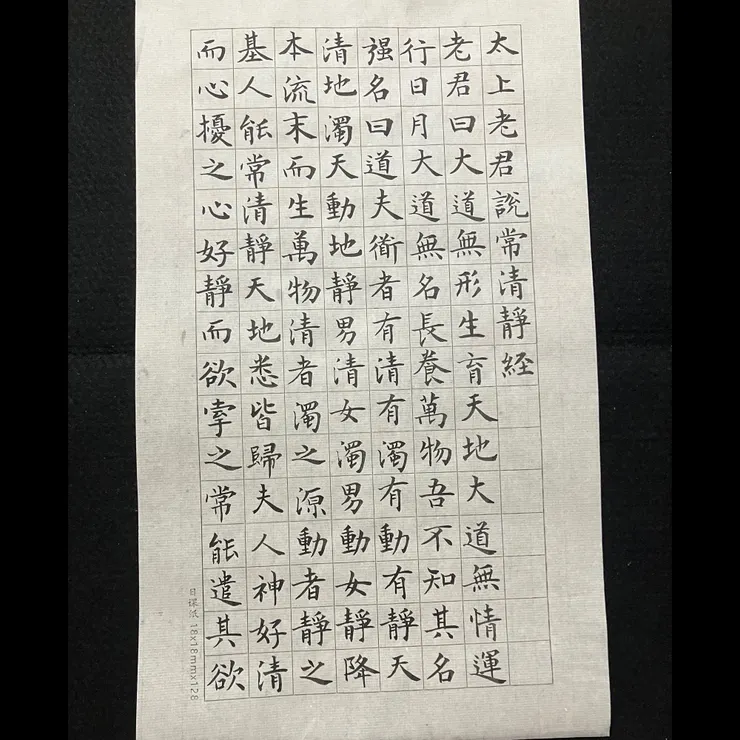 太上老君說常清靜経
老君曰大道無形生育天地大道無情運
行日月大道無名長養萬物吾不知其名
强名曰道夫衜者有清有濁有動有靜天
清地濁天動地靜男清女濁男動女靜降
本流末而生萬物清者濁之源動者靜之
基人能常清靜天地悉皆歸夫人神好清
而心擾之心好靜而欲牽之常能遣其欲
日课纸 18x18mmx128